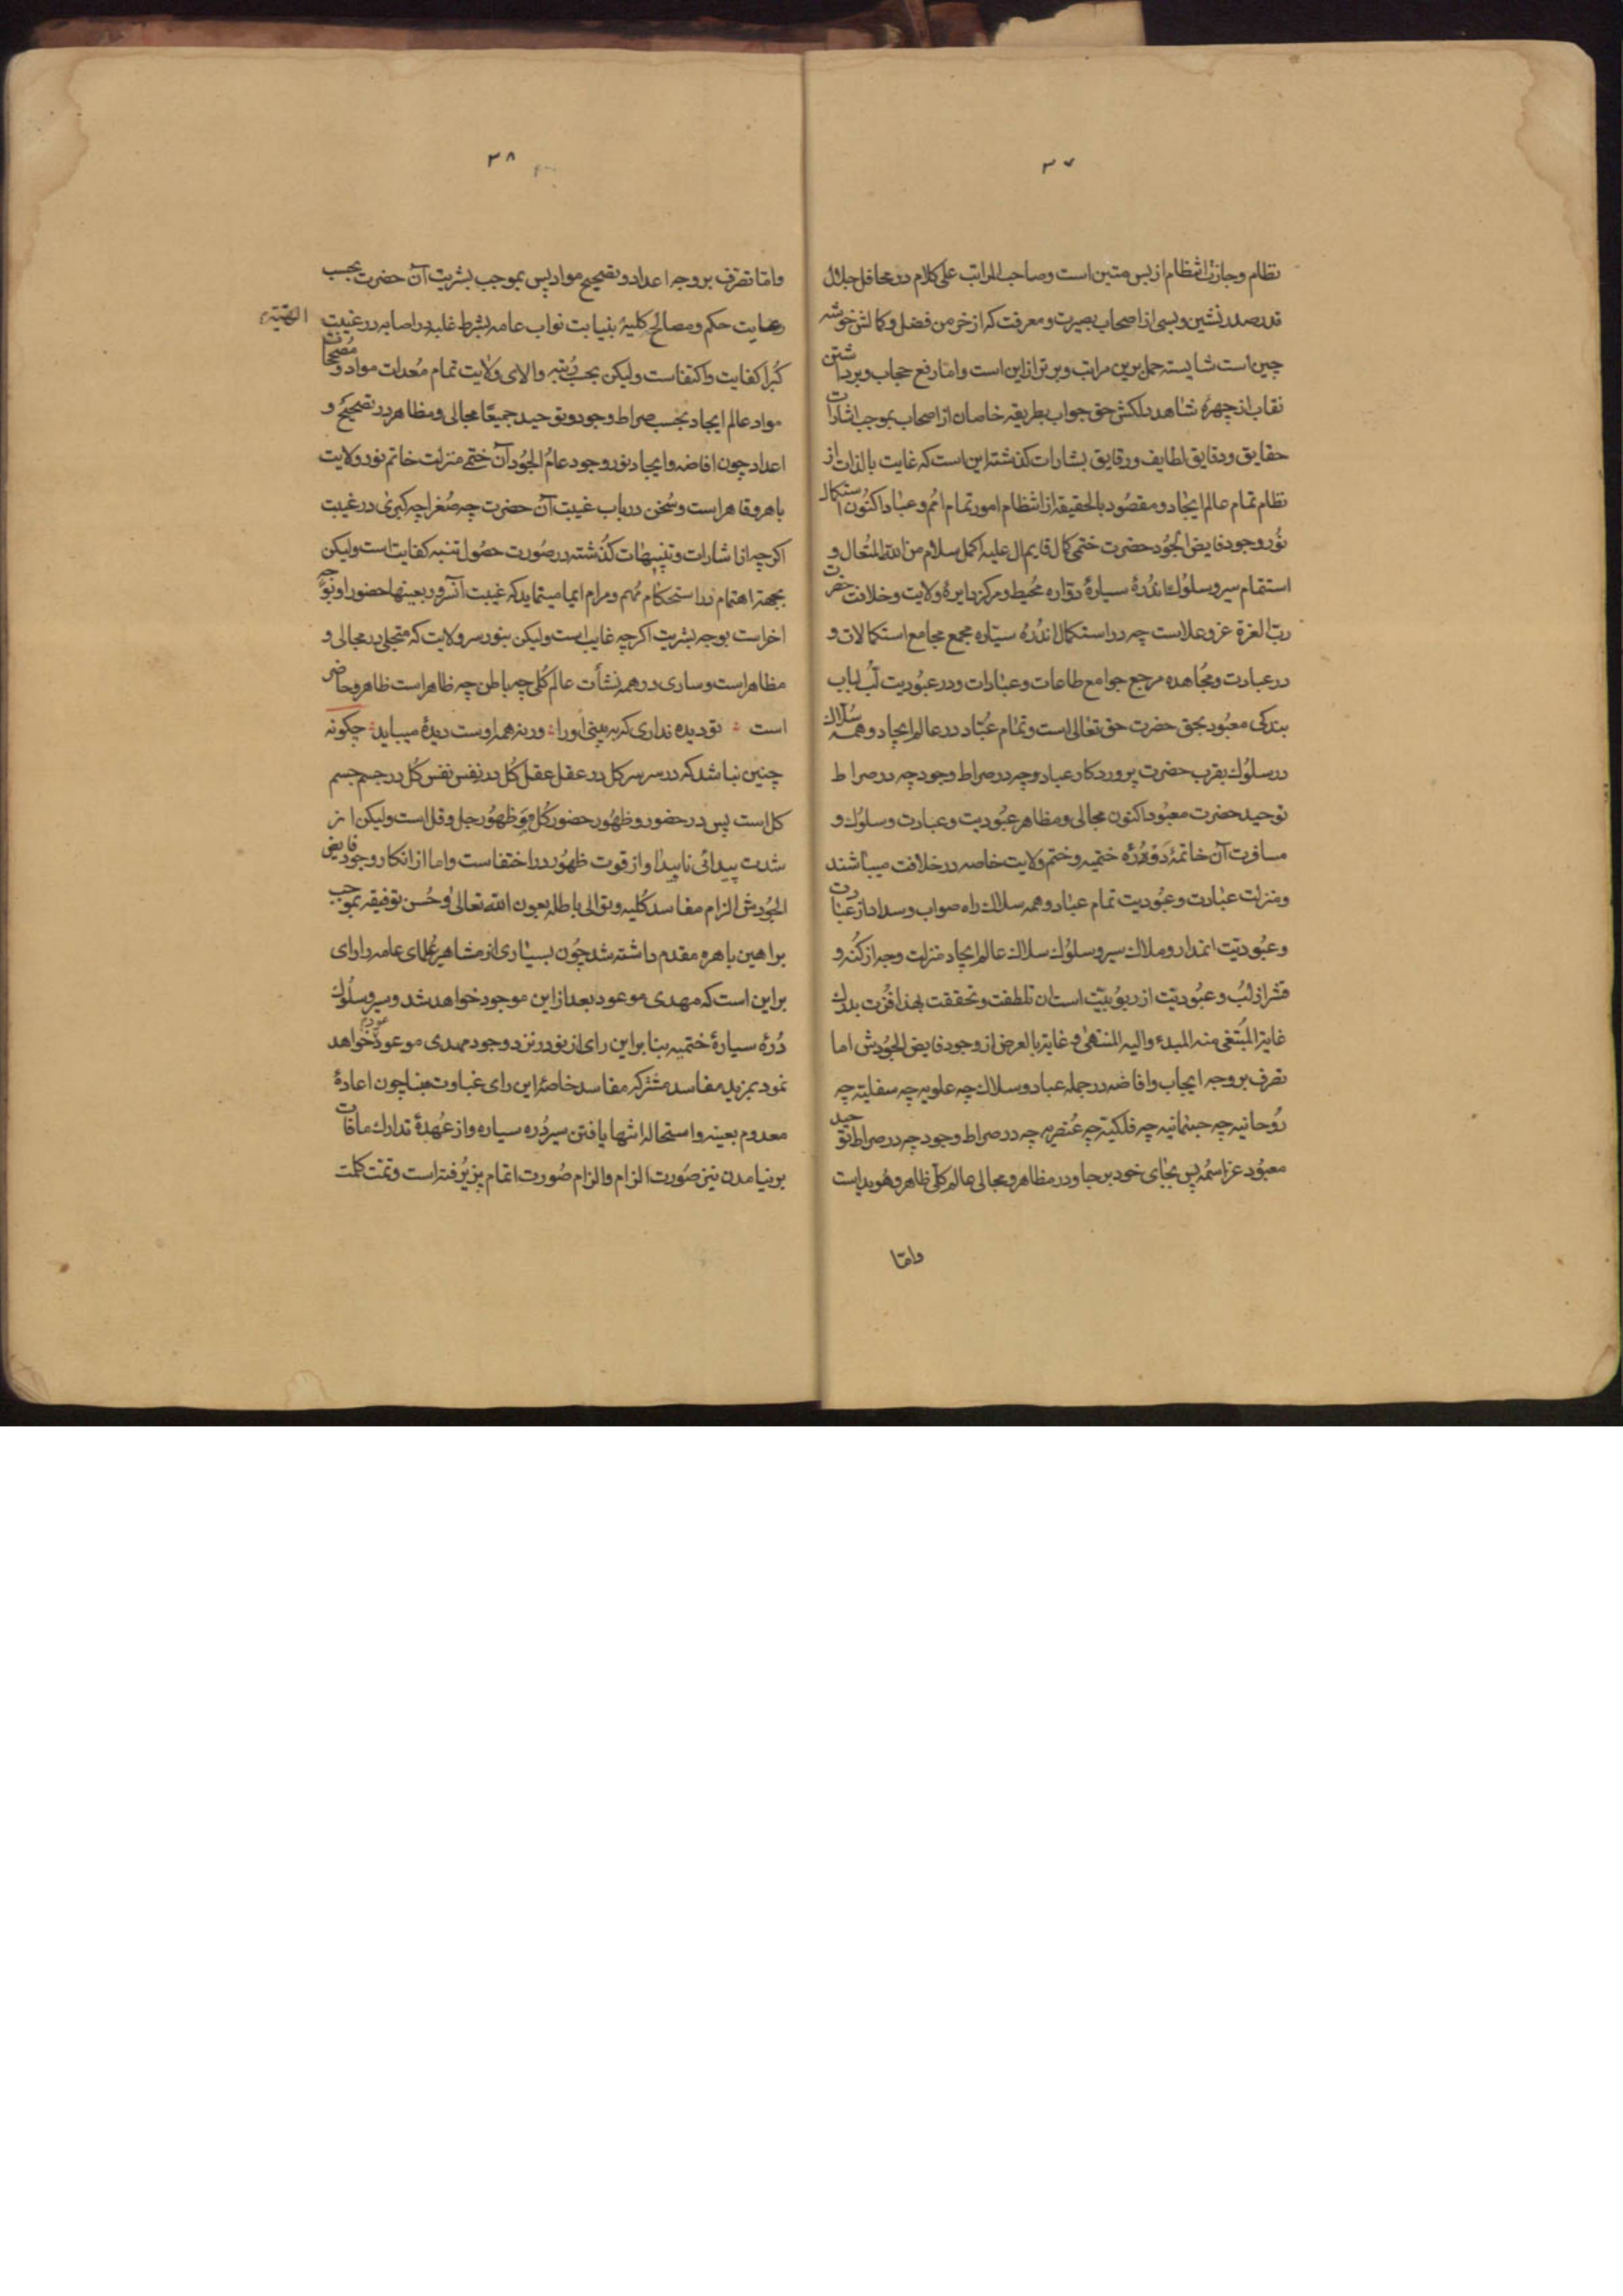 ۳۷
نظام وجازت انتظام از بس متین است و صاحب المراتب علی کلام در محافل جلال
قدر صدر نشین و بسی از اصحاب بصیرت و معرفت که از خرمن فضل و کمالش خوشه
چین است شایسته حمل برین مراتب و برتر از این است و اما رفع حجاب و برداشتن
نقاب از چهرهٔ شاهد دلکش حق جواب بطریقه خاصان از اصحاب بموجب اشارات
حقایق و دقایق لطایف و رقایق بشارات کذشته این است که غایت بالذات از
نظام تمام عالم ایجاد و مقصُود بالحقیقه از انتظام امور تمام امُم و عباد اکنُون استکمال
نوُر وجود فایض الجُود حضرت ختمی کمال قایم ال علیه اکمل سلام من الله المتعال و
استتمام سیر و سلوُك ان دُرهٔ سیارهٔ دوّاره مُحیط و مرکز دایرهٔ ولایت و خلافت حضرت
ربّ العزة عز و علاست چه در استکمال ان دُره سیّاره مجمع مجامع استکمالات و
در عبادت و مجُاهده مرجع جوامع طاعات و عبادات و در عبوُدیت لُب لباب
بندکی معبوُد بحق حضرت حق تعالی است و تمام عبُّاد در عالم ایجاد و همه سُلّاك
در سلوُك بقرب حضرت پروردکار عباد و چه در صراط وجود چه در صراط
توحید حضرت معبُود اکنون مجالی و مظاهر عبُودیت و عبادت و سلوُك و
مسافرت آن خاتمهٔ دُرّه ختمیه و ختم ولایت خاصه در خلافت میباشند
و منزلت عبادت و عبُودیت تمام عباد و همه سلاك راه صواب و سداد از عبادت
و عبُودیّت انمدار و ملاك سیر و سلوُك سلاك عالم ایجاد منزلت وجه از کُنه و
قشر از لبُ و عبُودیّت از ربوُبیّت است ان تلطفت و تحققت بهذا فزُت بدرك
غایة المُبتغی منه المبدء والیه المنتهی و غایة بالعرض از وجود فایض الجُودش اما
تصرف بر وجه ایجاب و افاضه در جمله عباد و سلاك چه علویه چه سفلیّه چه
رُوحانیه چه جسمانیه چه فلکیّه چه عُنصریه چه در صراط وجود چه در صراط توحید
معبُود عز اسمُه پس بجای خود برجا و در مظاهر و مجالی عالم کلّی ظاهر و هُویداست
واما
۳۸
واما تصرف بر وجه اعداد و تصحیح مواد پس بموجب بشریت آن حضرت بحسب
رعایت حکم و مصالح کلیهٔ بنیابت نواب عامه بشرط غلبه در اصابه در غیبت
کُبرا کفایت و اکتفاست ولیکن بحسب رُتبه والای ولایت تمام مُعدات مواد و مُصححات
مواد عالم ایجاد بحسب صراط وجود و توحید جمیعًا مجالی و مظاهر در تصحیح و
اعداد چون افاضه و ایجاد نور وجود عامُ الجُود آن ختمی منزلت خاتم نور ولایت
باهر و قاهر است و سُخن در باب غیبت آن حضرت چه صُغرا چه کبری در غیبت
اکرچه از اشارات و تنبیهات کذُشته در صُورت حصُول تنبه کفایت است ولیکن
بجهة اهتمام در استحکام مُهم و مرام ایما مینماید که غیبت آنسرور بعینها حضور او بوجه
اخراست بوجه بشریت اکرچه غایب است ولیکن بنور سر ولایت که متجلی در مجالی و
مظاهر است و ساری در همه نشأت عالم کُلی چه باطن چه ظاهر است ظاهر و حاضر
است ؞ تو دیده نداری که به بینی او را ؞ ورنه همه اوست دیدهٔ میباید ؞ چکونه
چنین نباشد که در سر سر کل در عقل عقل کُل در نفس نفس کُل در جسم جسم
کل است پس در حضور و ظهُور حضور کُل و ظهُور جل و قل است ولیکن از
شدت پیدائی ناپیدا و از قوت ظهُور در اختفاست و اما از انکار وجود فایض
الجُودش الزام مفاسد کُلیه و توالی باطله بعون الله تعالی و حُسن توفیقه بموجب
براهین باهره مقدم داشته شد چوُن بسیاری از مشاهیر عُلمای عامه را رای
بر این است که مهدی موعود بعد از این موجود خواهد شد و سیر و سلُوك
دُرهٔ سیارهٔ ختمیه بنا بر این رای از نو در نزد وجود مهدی موعود عود خواهد
نمود بمزید مفاسد مشترکه مفاسد خاصهٔ این رای غباوت بنا چون اعادهٔ
معدوم بعینه و استحاله انتها یافتن سیر دُره سیاره و از عُهدهٔ تدارك مافات
بر نیامدن نیز صُورت الزام و الزام صُورت اتمام پزیرُفته است و تمّت کلمت